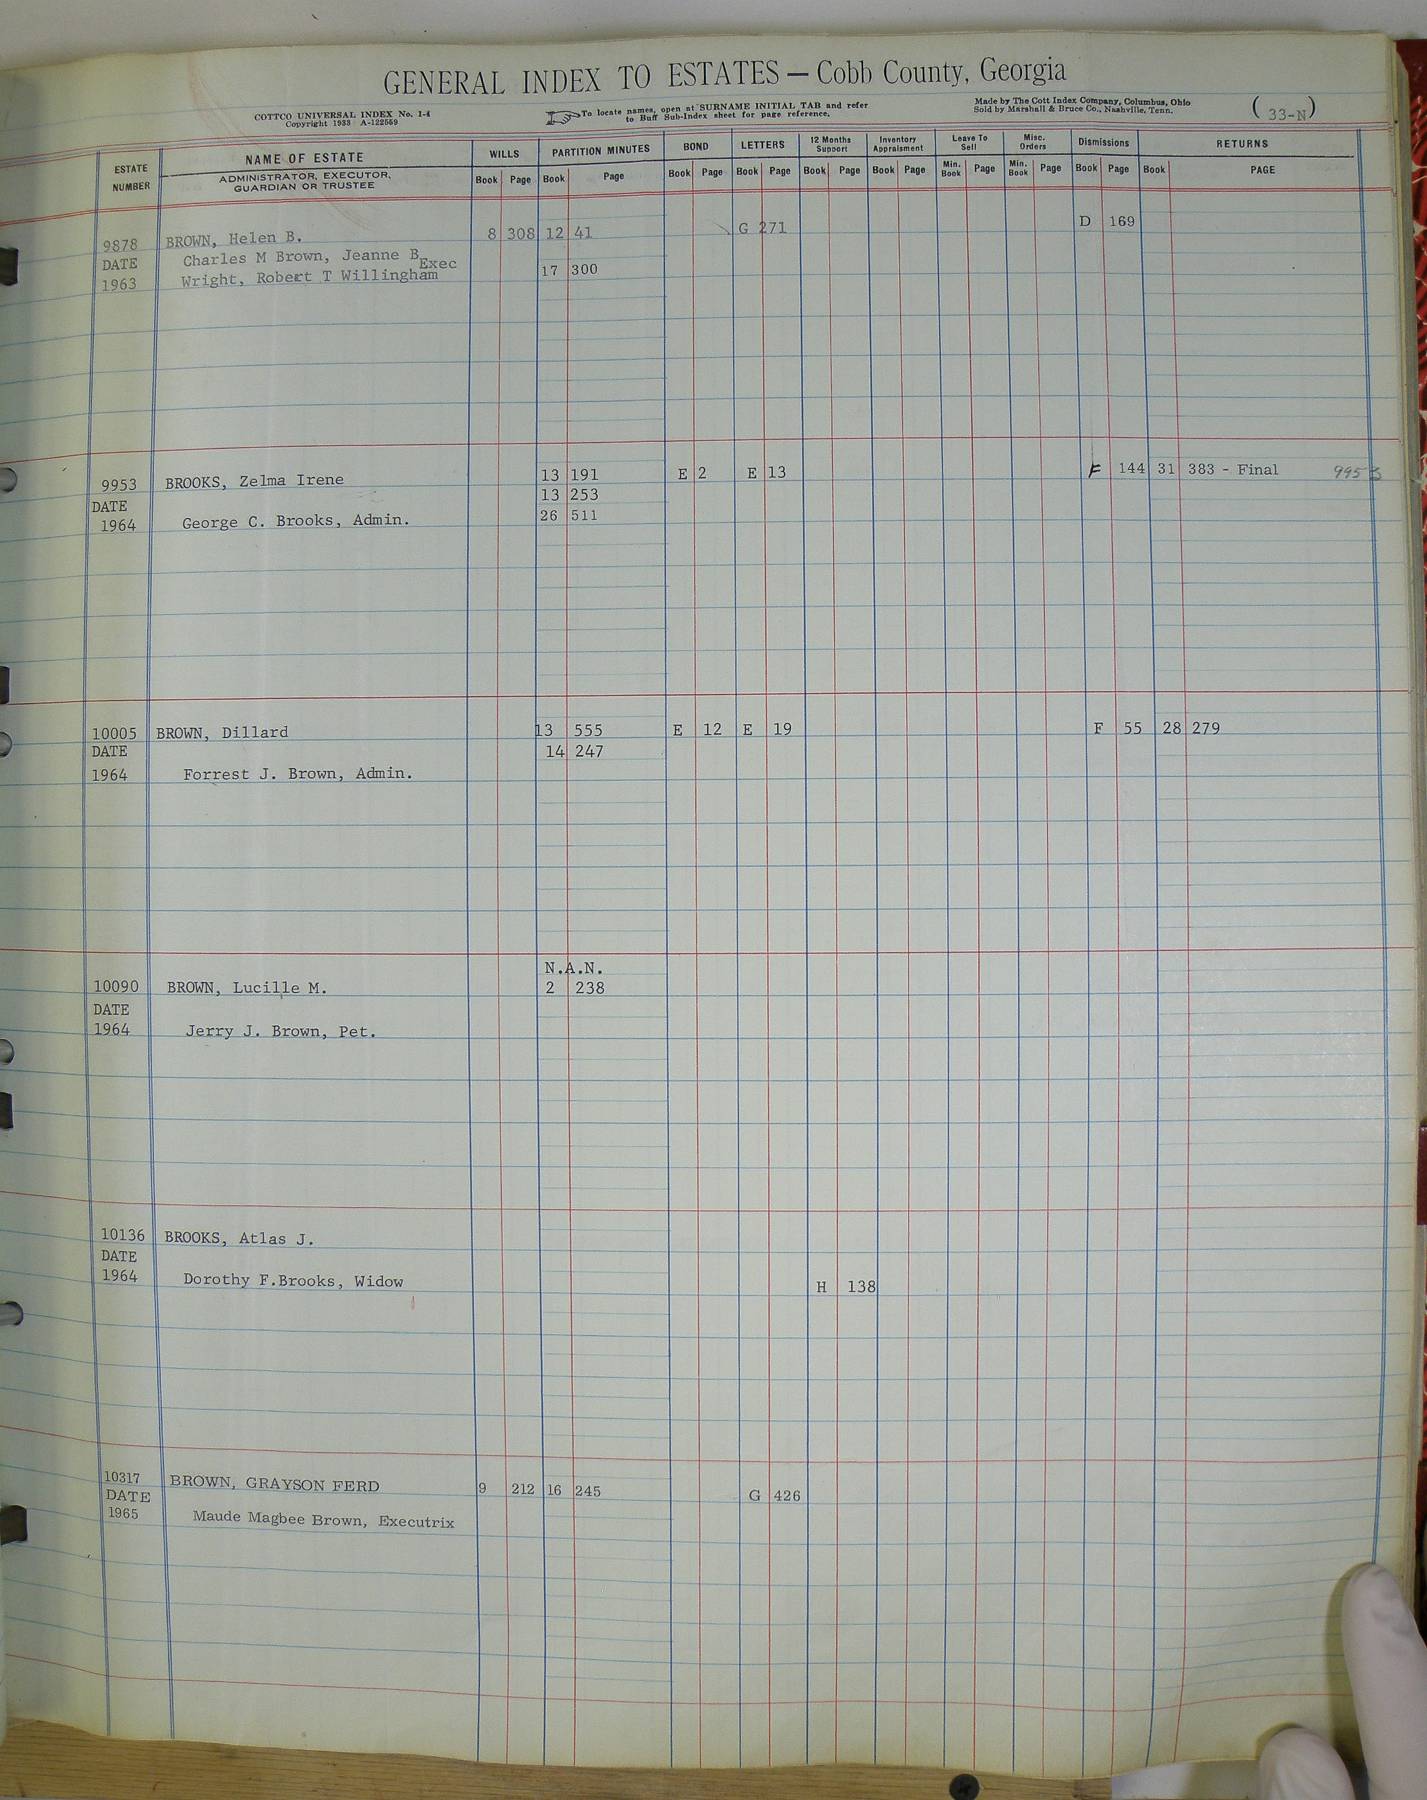 GENERAL INDEX TO ESTATES — Cobb County, Georgia
COTTCO UNIVERSAL INDEX No. 1-4
Copyright 1933 A-122559
To locate names, open at SURNAME INITIAL TAB and refer
to Buff Sub-Index sheet for page reference.
Made by The Cott Index Company, Columbus, Ohio
Sold by Marshall & Bruce Co., Nashville, Tenn.
( 33-N )
ESTATE NUMBER NAME OF ESTATE WILLS PARTITION MINUTES BOND LETTERS 12 Months Support Inventory Appraisment Leave To Sell Misc. Orders Dismissions RETURNS
ADMINISTRATOR, EXECUTOR, GUARDIAN OR TRUSTEE Book Page Book Page Book Page Book Page Book Page Book Page Min. Book Page Min. Book Page Book Page Book PAGE
9878 BROWN, Helen B. 8 308 12 41 G 271 D 169
DATE Charles M Brown, Jeanne B Exec
1963 Wright, Robert T Willingham 17 300
9953 BROOKS, Zelma Irene 13 191 E 2 E 13 F 144 31 383 - Final 9953
DATE 13 253
1964 George C. Brooks, Admin. 26 511
10005 BROWN, Dillard 13 555 E 12 E 19 F 55 28 279
DATE 14 247
1964 Forrest J. Brown, Admin.
N.A.N.
10090 BROWN, Lucille M. 2 238
DATE
1964 Jerry J. Brown, Pet.
10136 BROOKS, Atlas J.
DATE
1964 Dorothy F.Brooks, Widow H 138
10317 BROWN, GRAYSON FERD 9 212 16 245 G 426
DATE
1965 Maude Magbee Brown, Executrix